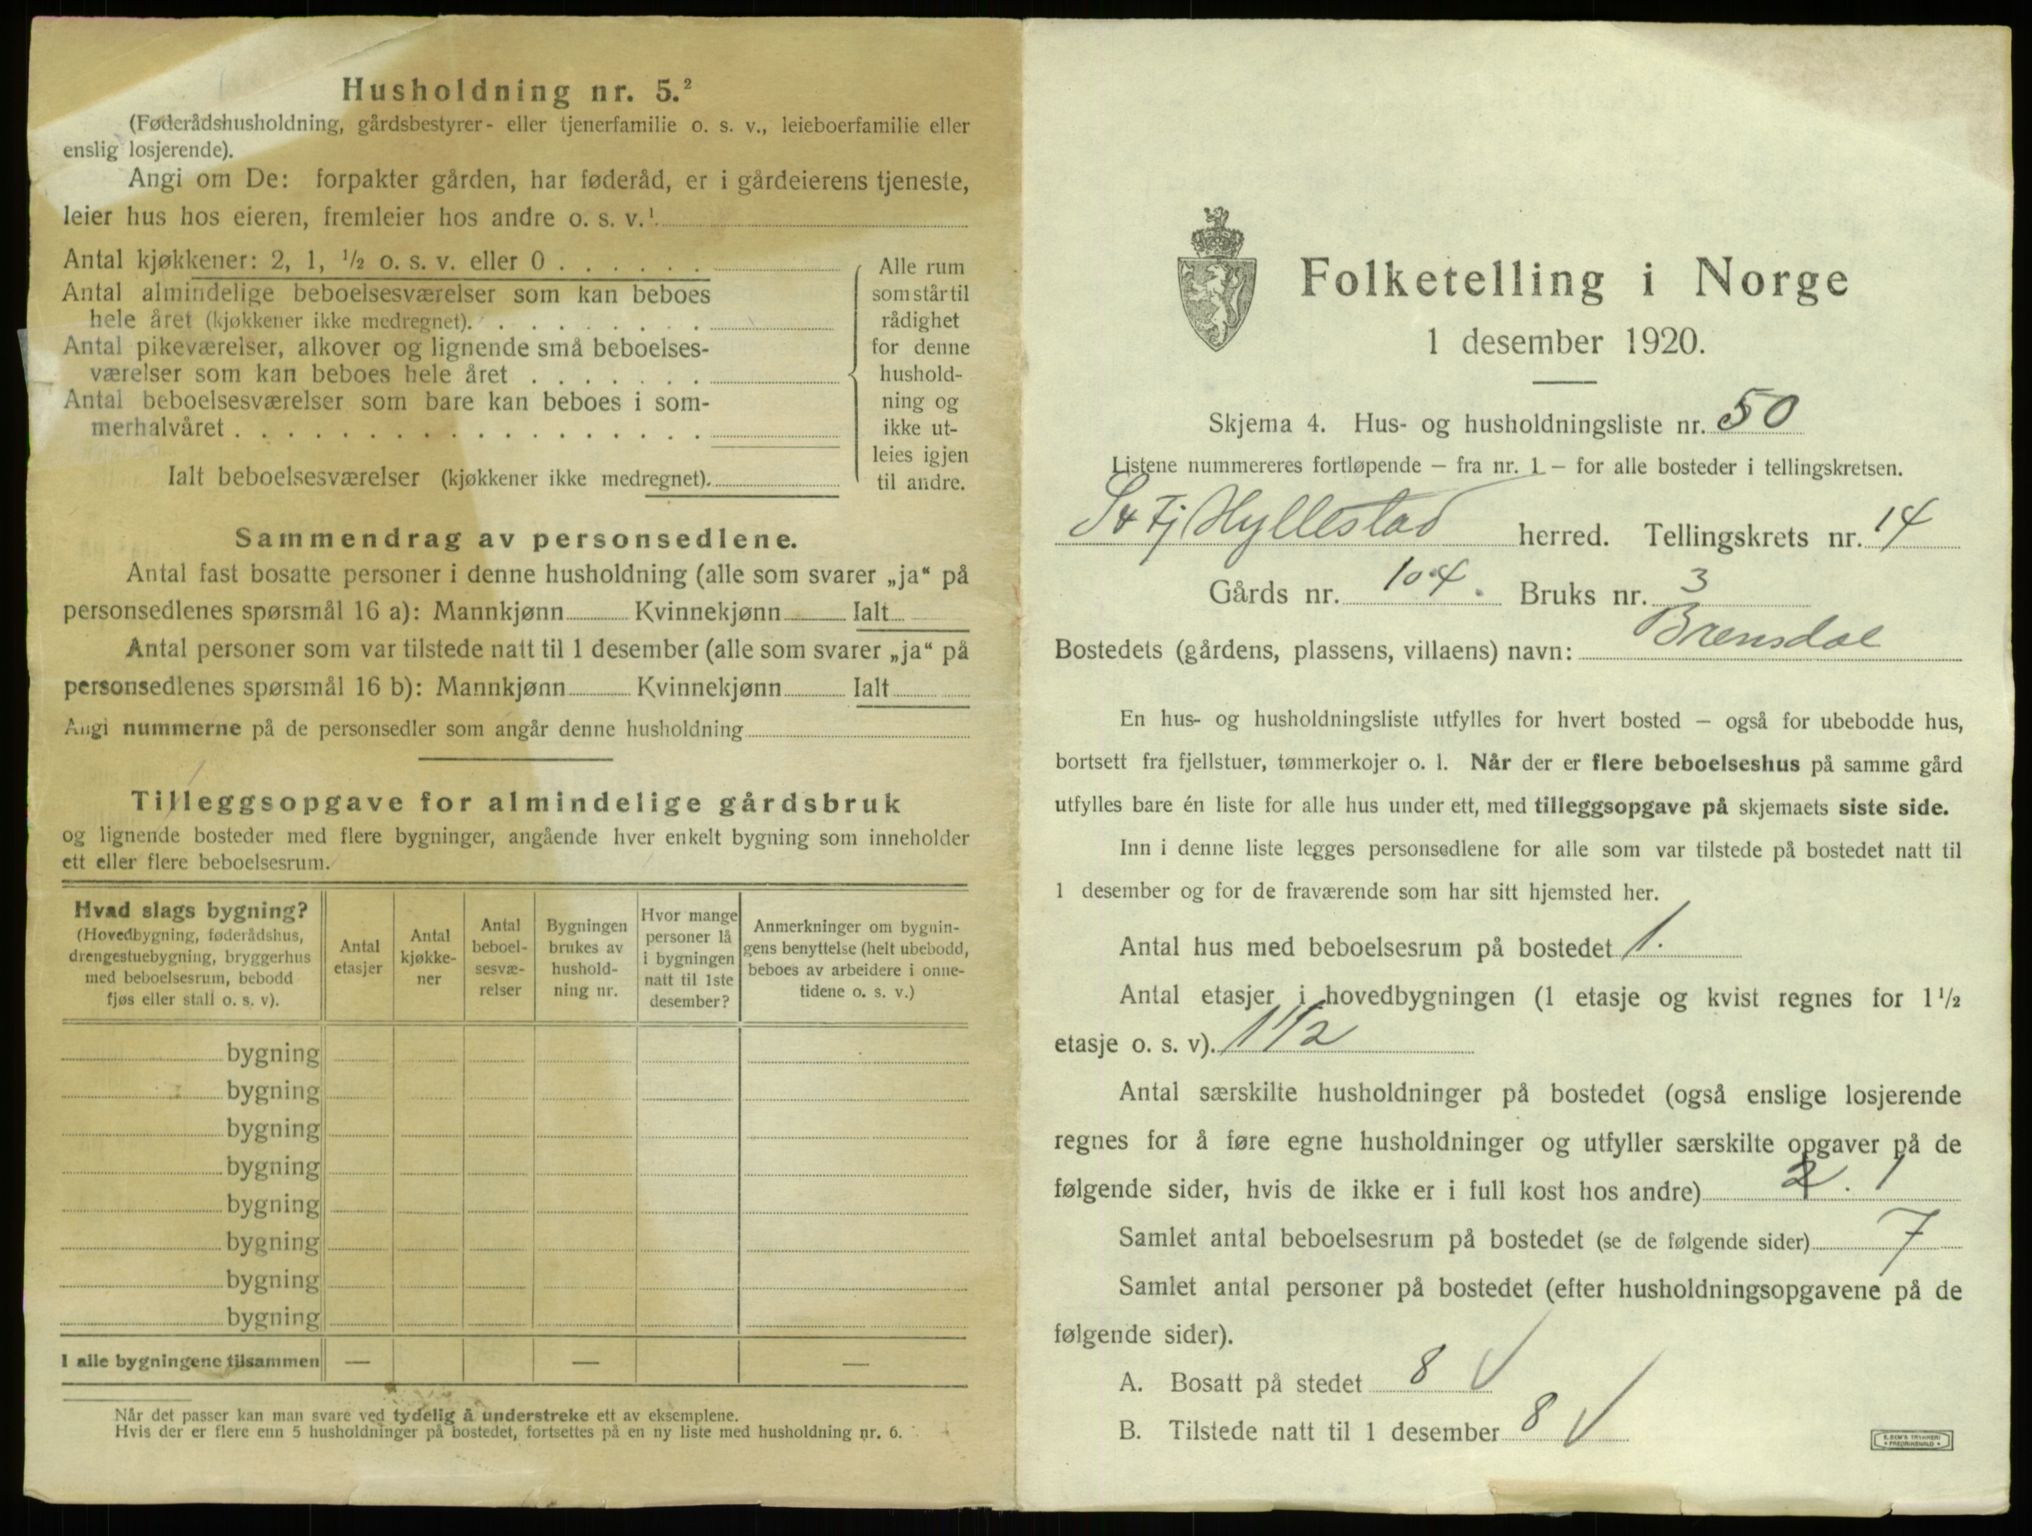 Husholdning nr. 5.²
(Føderådshusholdning, gårdsbestyrer- eller tjenerfamilie o. s. v., leieboerfamilie eller
enslig losjerende).
Angi om De: forpakter gården, har føderåd, er i gårdeierens tjeneste,
leier hus hos eieren, fremleier hos andre o. s. v.¹
Antal kjøkkener: 2, 1, ½ o. s. v. eller 0 . . . . . .
Antal almindelige beboelsesværelser som kan beboes
hele året (kjøkkener ikke medregnet). . . . . . . . .
Antal pikeværelser, alkover og lignende små beboelses-
værelser som kan beboes hele året . . . . . . .
Antal beboelsesværelser som bare kan beboes i som-
merhalvåret . . . . . . . . . . . . . . . . . .
Ialt beboelsesværelser (kjøkkener ikke medregnet).
Alle rum
som står til
rådighet
for denne
hushold-
ning og
ikke ut-
leies igjen
til andre.
Sammendrag av personsedlene.
Antal fast bosatte personer i denne husholdning (alle som svarer „ja“ på
personsedlenes spørsmål 16 a): Mannkjønn Kvinnekjønn Ialt
Antal personer som var tilstede natt til 1 desember (alle som svarer „ja“ på
personsedlenes spørsmål 16 b): Mannkjønn Kvinnekjønn Ialt
Angi nummerne på de personsedler som angår denne husholdning
Tilleggsopgave for almindelige gårdsbruk
og lignende bosteder med flere bygninger, angående hver enkelt bygning som inneholder
ett eller flere beboelsesrum.
Hvad slags bygning?
(Hovedbygning, føderådshus,
drengestuebygning, bryggerhus
med beboelsesrum, bebodd
fjøs eller stall o. s. v).
Antal
etasjer
Antal
kjøkke-
ner
Antal
beboel-
sesvæ-
relser
Bygningen
brukes av
hushold-
ning nr.
Hvor mange
personer lå
i bygningen
natt til 1ste
desember?
Anmerkninger om bygnin-
gens benyttelse (helt ubebodd,
beboes av arbeidere i onne-
tidene o. s. v.)
bygning
bygning
bygning
bygning
bygning
bygning
bygning
bygning
I alle bygningene tilsammen — — —
Når det passer kan man svare ved tydelig å understreke ett av eksemplene.
Hvis der er flere enn 5 husholdninger på bostedet, fortsettes på en ny liste med husholdning nr. 6.
Folketelling i Norge
1 desember 1920.
Skjema 4. Hus- og husholdningsliste nr. 50
Listene nummereres fortløpende – fra nr. 1 – for alle bosteder i tellingskretsen.
S & Fj Hyllestad herred. Tellingskrets nr. 14
Gårds nr. 104. Bruks nr. 3
Bostedets (gårdens, plassens, villaens) navn: Brensdal
En hus- og husholdningsliste utfylles for hvert bosted – også for ubebodde hus,
bortsett fra fjellstuer, tømmerkojer o. l. Når der er flere beboelseshus på samme gård
utfylles bare én liste for alle hus under ett, med tilleggsopgave på skjemaets siste side.
Inn i denne liste legges personsedlene for alle som var tilstede på bostedet natt til
1 desember og for de fraværende som har sitt hjemsted her.
Antal hus med beboelsesrum på bostedet 1.
Antal etasjer i hovedbygningen (1 etasje og kvist regnes for 1½
etasje o. s. v). 1½
Antal særskilte husholdninger på bostedet (også enslige losjerende
regnes for å føre egne husholdninger og utfyller særskilte opgaver på de
følgende sider, hvis de ikke er i full kost hos andre) 2. 1
Samlet antal beboelsesrum på bostedet (se de følgende sider) 7
Samlet antal personer på bostedet (efter husholdningsopgavene på de
følgende sider).
A. Bosatt på stedet 8 √
B. Tilstede natt til 1 desember 8 √